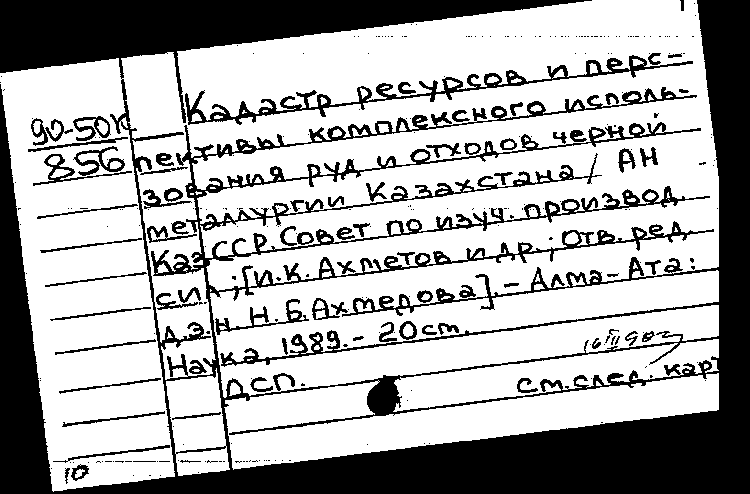 Кадастр ресурсов и перс-
90-50К
856
пективы комплексного исполь-
зования руд и отходов черной
металлургии Казахстана / АН
КазССР. Совет по изуч. производ.
сил ; [И.К. Ахметов и др. ; Отв. ред.
д.э.н. Н.Б. Ахмедова]. - Алма-Ата :
Наука, 1989. - 20 см.
ДСП.
см. след. карт
10